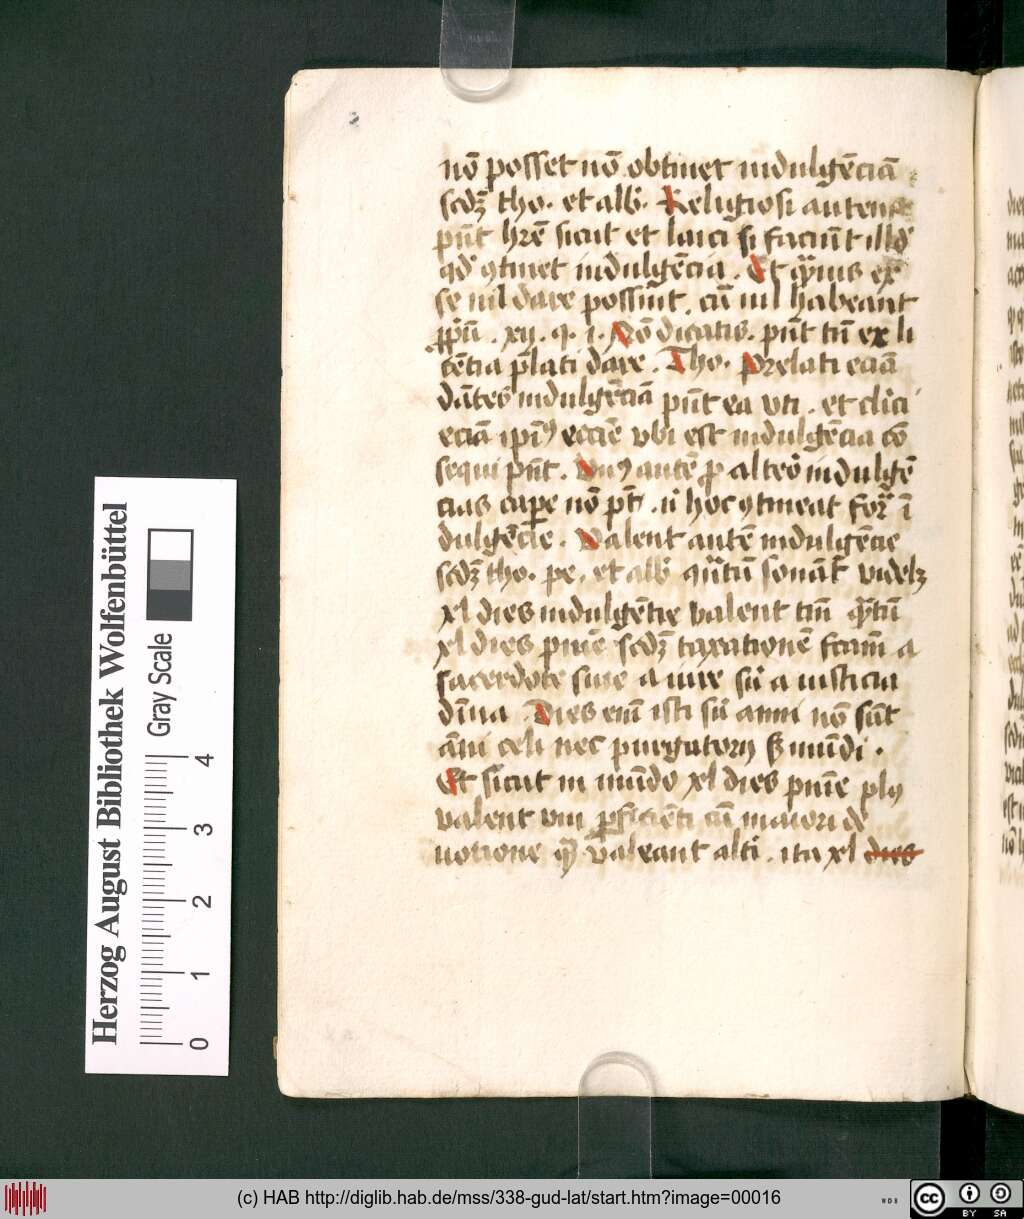 nō posset nō obtinet indulgēciā
scdꝫ tho. et alb. Religiosi autem
pn̄t hr̄e sicut et laici si faciūt illd
qd ꝯtinet indulgēcia. Et
se nil dare possūt. cū nil habeant
xij. q. i. Nō dicatis. pn̄t tn̄ ex li
cētia p̄lati dare. Tho. Prelati eciā
dātes indulgēciā pn̄t ea uti. et clīci
eciā ipīꝰ eccīe ubi est indulgēcia cō
sequi pn̄t. autē ꝓ alteō indulgē
cias caꝑe nō pt̄. n̄ hoc ꝯtineat for̄ ī
dulgēcie. Valent autē indulgēcie
scdꝫ tho. pe. et alb qn̄tū sonāt videlꝫ
xl dies indulgētie valent tm̄ qn̄tū
xl dies pn̄ie scdꝫ taxationē fcām a
sacerdote siue a iure siū a iusticia
diīna. Dies eni isti siū anni nō sūt
āni celi nec purgatorij sꝫ mūdi.
Et sicut in mūdo xl dies pn̄ie plꝰ
valent uni ꝑficiēti cū maiori de
uotione qͣꝫ valeant altī. ita xl dies
Herzog August Bibliothek Wolfenbüttel
Gray Scale
0 1 2 3 4
(c) HAB http://diglib.hab.de/mss/338-gud-lat/start.htm?image=00016
WDB
cc BY SA